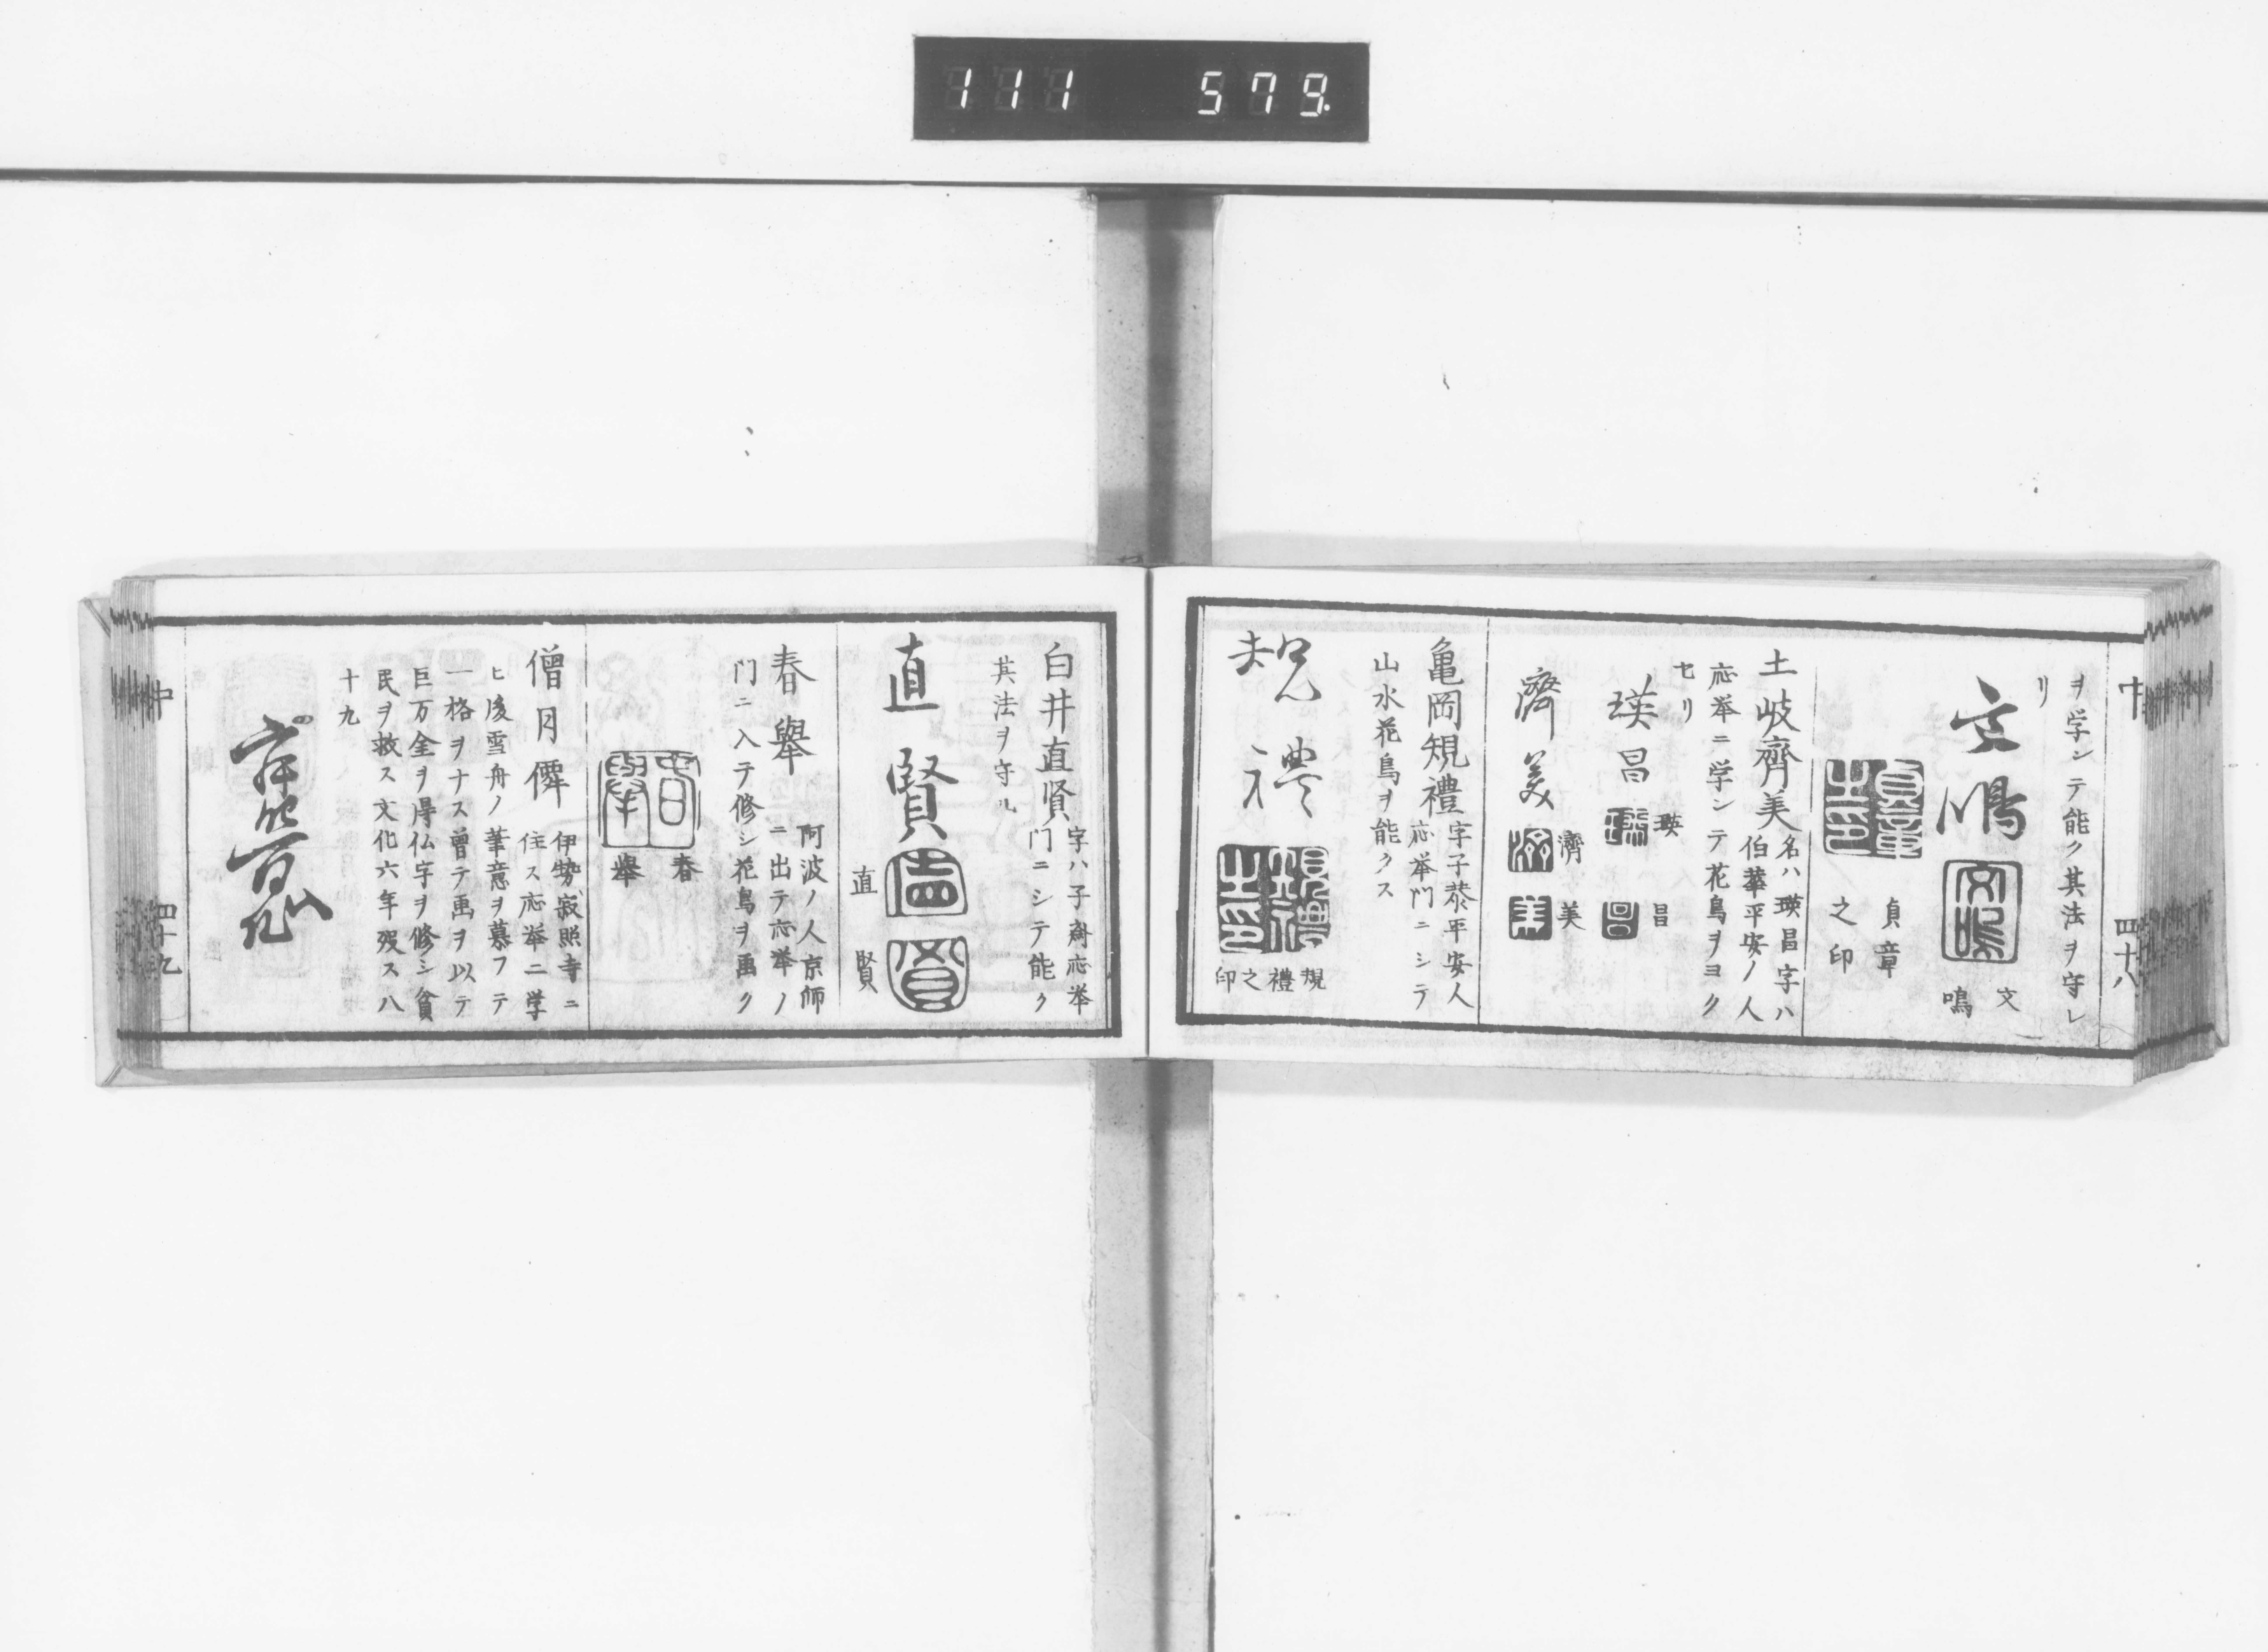 111 579.
中
四十八
ヲ学ンテ能ク其法ヲ守レ
リ
文鳴
文鳴
貞章
之印
土岐齊美
名ハ瑛昌字ハ
伯華平安ノ人
応挙ニ学ンテ花鳥ヲヨク
セリ
瑛昌
瑛
昌
濟美
濟
美
亀岡規禮
字子恭平安人
応挙門ニシテ
山水花鳥ヲ能クス
規禮
規
禮
之
印
白井直賢
字ハ子齋応挙
门ニシテ能ク
其法ヲ守ル
直賢
直賢
春舉
阿波ノ人京師
ニ出テ応挙ノ
门ニ入テ修シ花鳥ヲ画ク
春
舉
僧月僊
伊勢寂照寺ニ
住ス応挙ニ学
ヒ後雪舟ノ筆意ヲ慕フテ
一格ヲナス曽テ画ヲ以テ
巨万金ヲ得仏宇ヲ修シ貧
民ヲ救ス文化六年歿ス八
十九
中
四十九